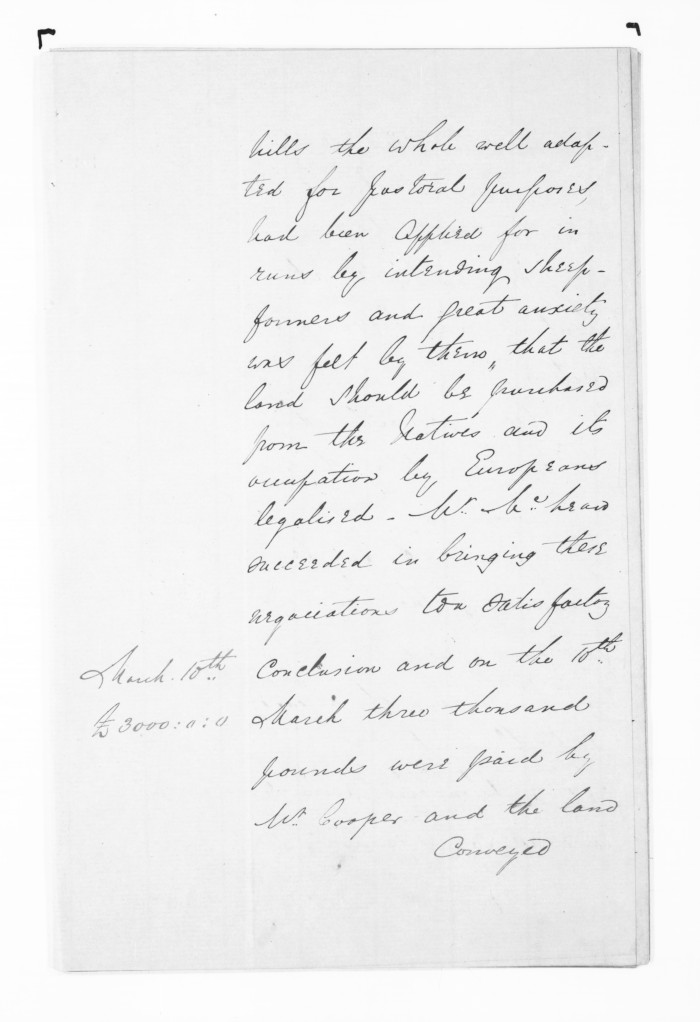 hills the whole well adap-
ted for pastoral purposes,
had been applied for in
runs by intending sheep-
farmers and great anxiety
was felt by them, that the
land should be purchased
from the Natives and its
occupation by Europeans
legalised - Mr. McLean
succeeded in bringing these
negociations to a satisfactory
March. 10th conclusion and on the 10th.
£3000:0:0 March three thousand
pounds were paid by
Mr. Cooper and the land
Conveyed